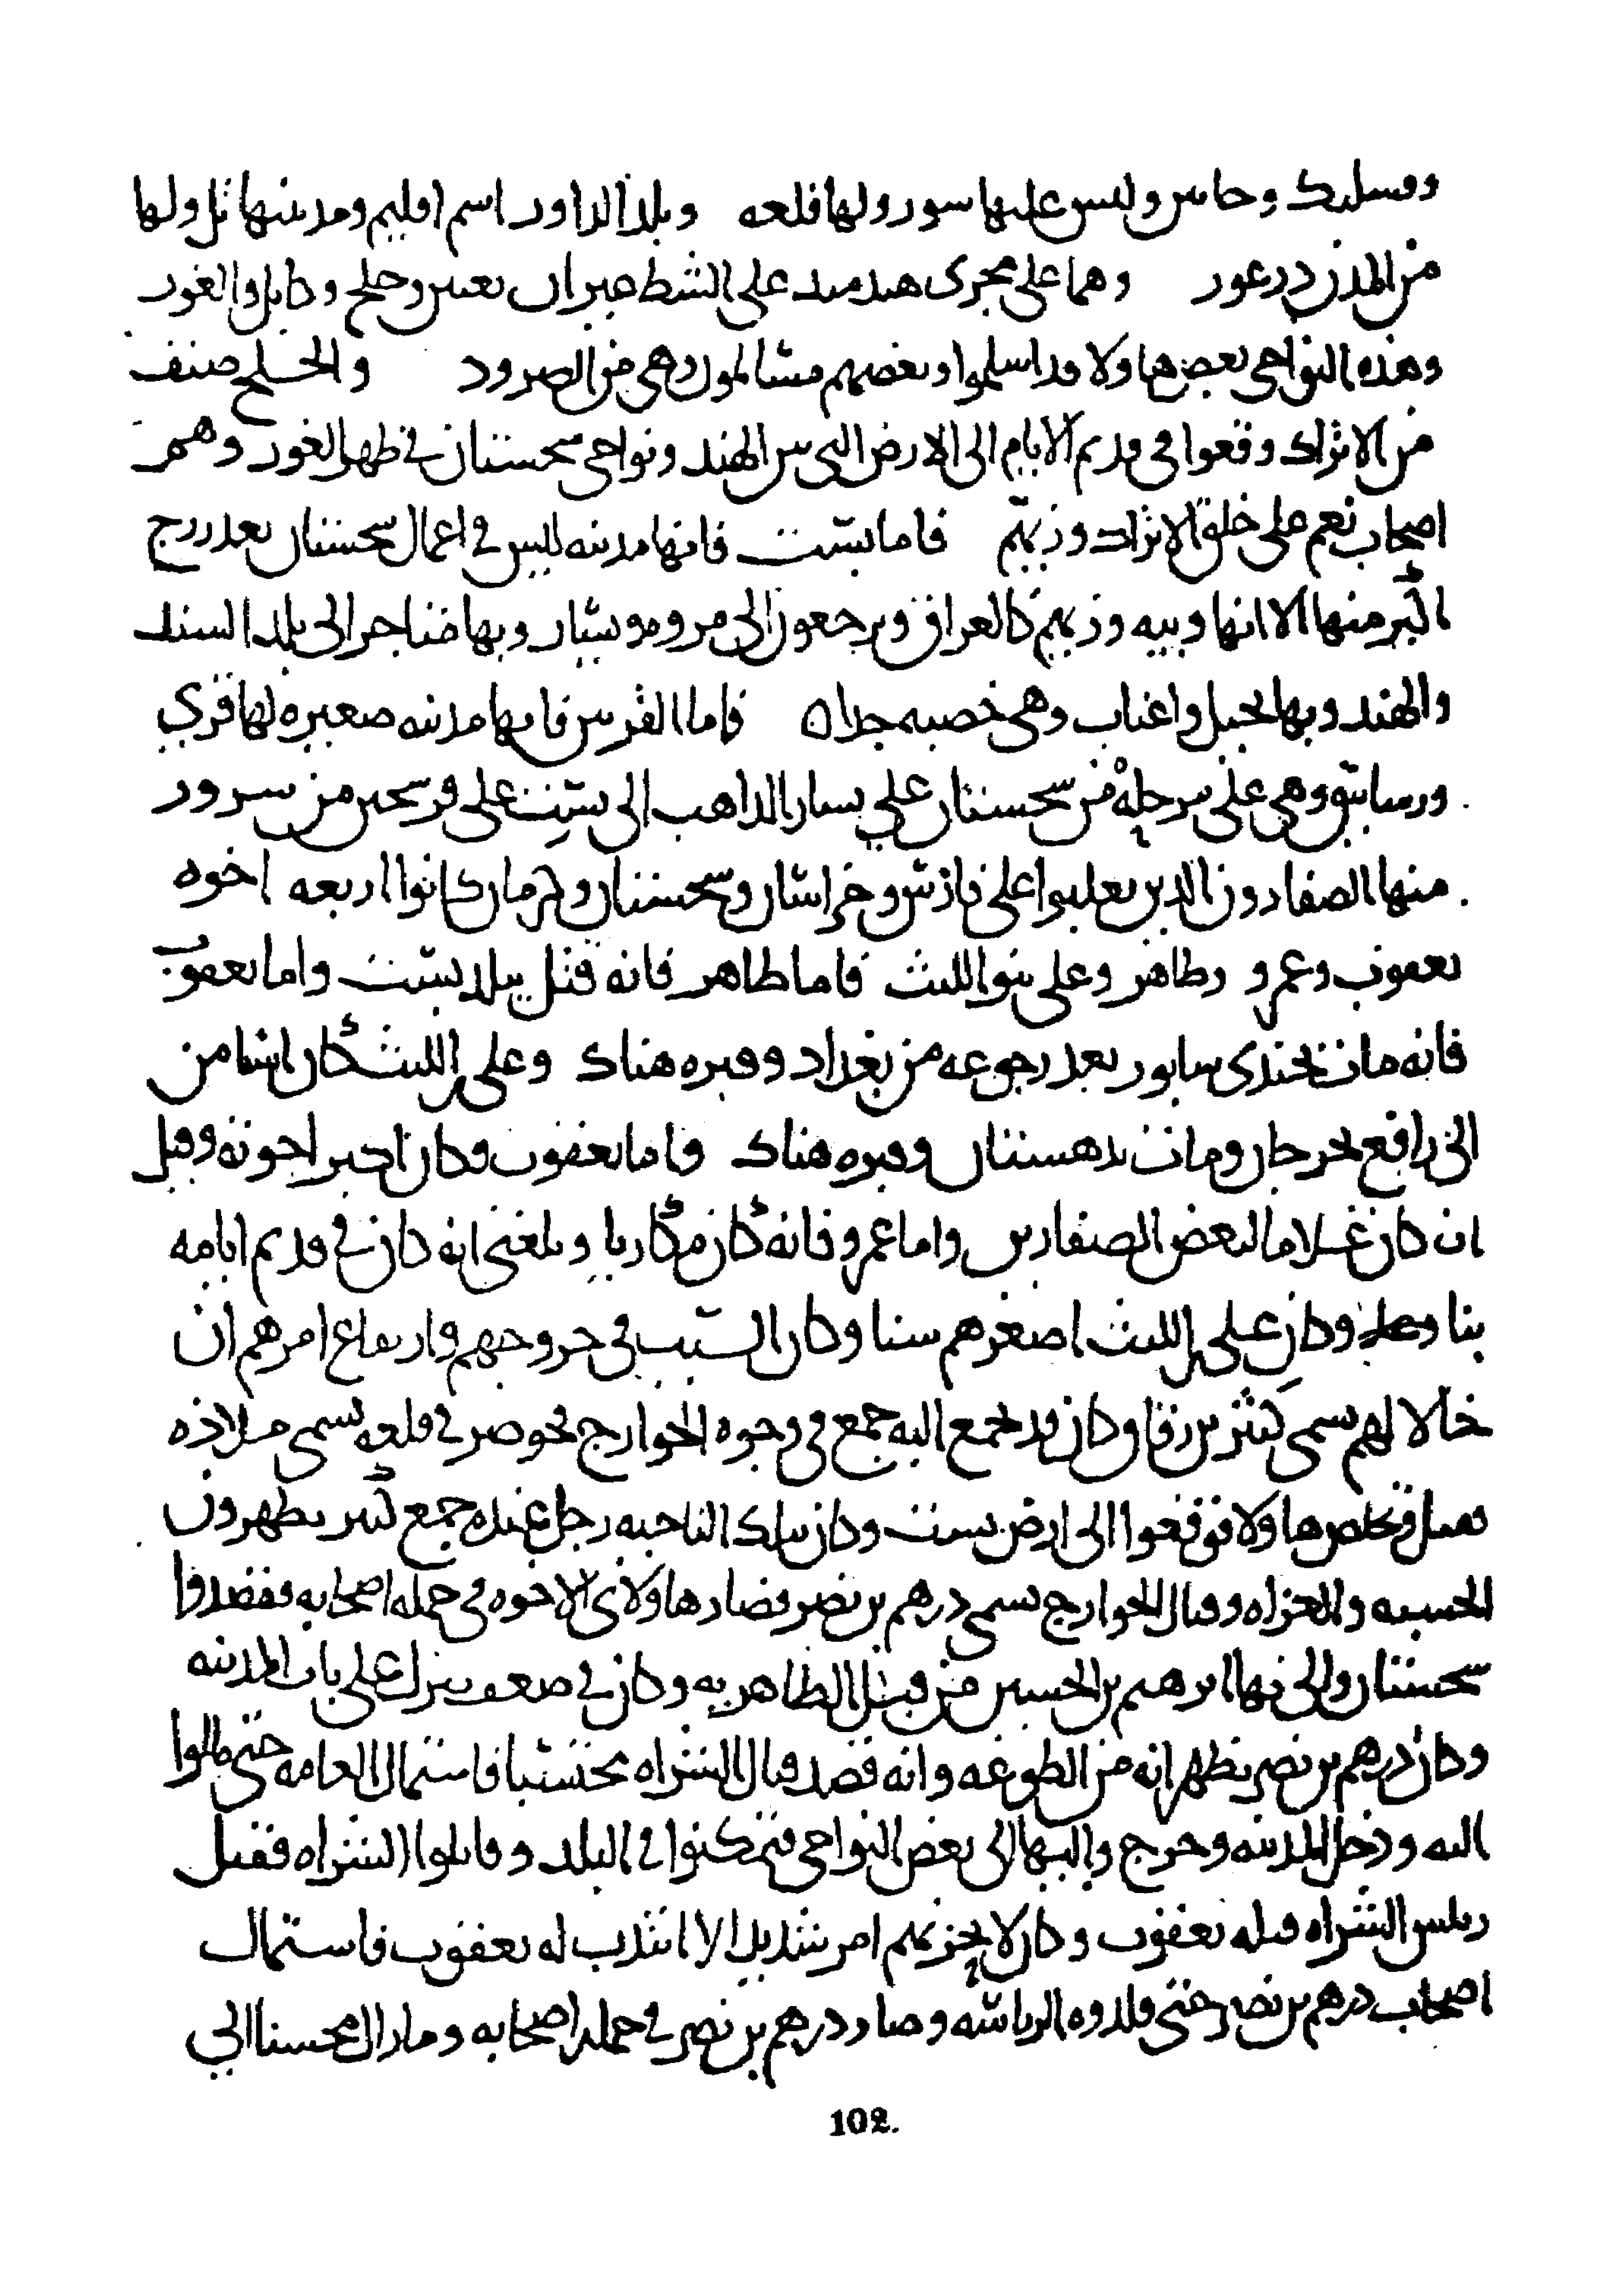 وفسلىك وحاس وليس عليها سور ولها قلعه وبلد الداور اسم اقليم ومدينتها تل ولها
من المدن درغور وهما على مجرى هيدمند على الشط ميران بغنين وخلج وكابل والغور
وهذه النواحي بعض هاولا قد اسلموا وبعضهم مسالمون وهي من الصرود والخلج صنف
من الاتراك وقعوا في قديم الايام الى الارض التي بين الهند ونواحي سجستان في ظهر الغور وهم
اصحاب نعم على خلق الاتراك وزيهم فاما بست فانها مدينه ليس في اعمال سجستان بعد زرنج
اكبر منها الا انها وبيه وزيهم كالعراق ويرجعون الى مروه ويسار وبها متاجر الى بلد السند
والهند وبها نخيل واعناب وهي خصبه جدا ه فاما القرنين فانها مدينه صغيره لها قرى
ورساتيق وهي على مرحله من سجستان على يسار الذاهب الى بست على فرسخين من سرور
منها الصفارون الذين تغلبوا على فارس وخراسان وسجستان وكرمان كانوا اربعه اخوه
يعقوب وعمرو وطاهر وعلي بنو الليث فاما طاهر فانه قتل ببلد بست واما يعقوب
فانه مات بجندي سابور بعد رجوعه من بغداد وقبره هناك وعلي بن الليث كان استامن
الى رافع بجرجان ومات بدهستان وقبره هناك واما يعقوب وكان اكبر اخوته وقيل
انه كان غلاما لبعض الصفارين واما عمرو فانه كان مكاريا وبلغني انه كان في قديم ايامه
بنا وكان علي بن الليث اصغرهم سنا وكان السبب في خروجهم وارتفاع امرهم ان
خالا لهم يسمى كثير بن رقاق وكان قد تجمع اليه جمع في وجوه الخوارج فحوصر في قلعه تسمى ملاذه
فقتل وتخلص هاولا فوقعوا الى ارض بست وكان بتلك الناحيه رجل عنده جمع كثير يظهرون
الحسبه والغزاه وقتال الخوارج يسمى درهم بن نصر فصار هاولاى الاخوه في جمله اصحابه فقصدوا
سجستان والي بها ابرهيم بن الحسين من قبل الطاهريه وكان في ضعف فنزل على باب المدينه
وكان درهم بن نصر يظهر انه من المطوعه وانه قصد قتال الشراه محتسبا فاستمال العامه حتى مالوا
اليه ودخل المدينه وخرج واليها الى بعض النواحي فتمكنوا في البلد وقاتلوا الشراه فقتل
رئيس الشراه قتله يعقوب وكان لا يحزبهم امر شديد الا انتدب له يعقوب فاستمال
اصحاب درهم بن نصر حتى قلدوه الرياسه وصار درهم بن نصر في جمله اصحابه وما زال محسنا الى
102.